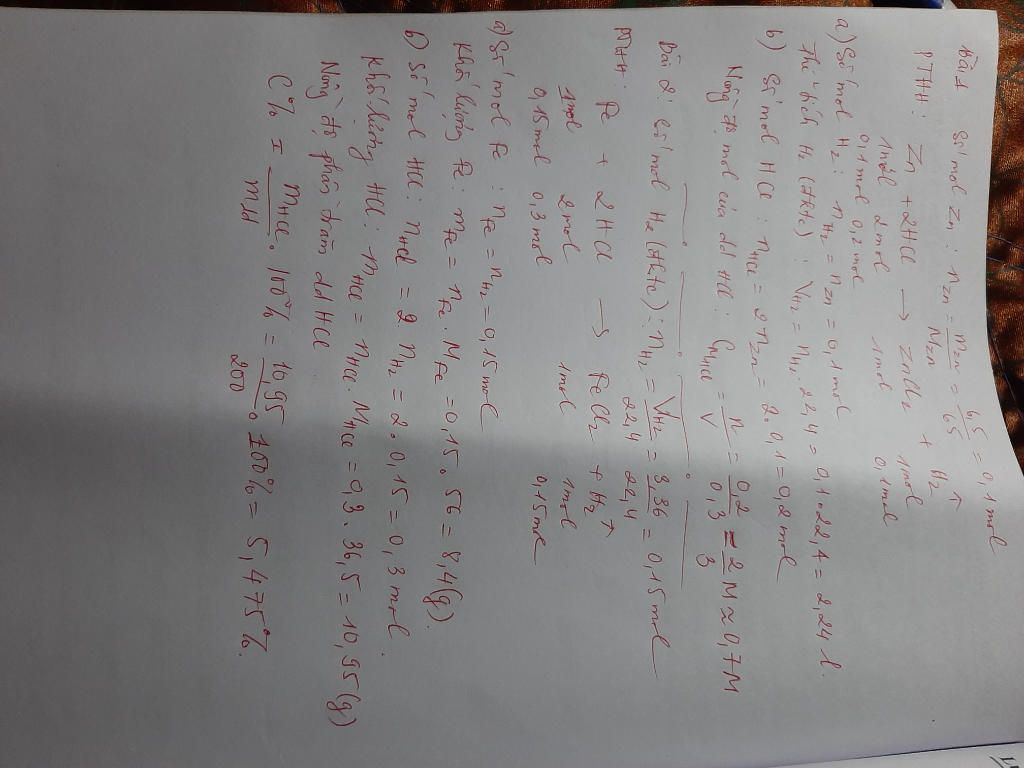 Bài 1 Số mol Zn: nZn = mZn/MZn = 6,5/65 = 0,1 mol
PTHH: Zn + 2HCl → ZnCl2 + H2 ↑
1mol 2mol 1mol 1mol
0,1mol 0,2mol 0,1mol
a) Số mol H2: nH2 = nZn = 0,1 mol
Thể tích H2 (đktc): VH2 = nH2. 22,4 = 0,1.22,4 = 2,24 l.
b) Số mol HCl: nHCl = 2nZn = 2.0,1 = 0,2 mol
Nồng độ mol của dd HCl: CMHCl = n/V = 0,2/0,3 = 2/3 M ≈ 0,7M
Bài 2: Số mol H2 (đktc): nH2 = VH2/22,4 = 3,36/22,4 = 0,15 mol
PTHH: Fe + 2HCl → FeCl2 + H2 ↑
1mol 2mol 1mol 1mol
0,15mol 0,3mol 0,15mol
a) Số mol Fe: nFe = nH2 = 0,15 mol
Khối lượng Fe: mFe = nFe. MFe = 0,15. 56 = 8,4(g).
b) Số mol HCl: nHCl = 2.nH2 = 2.0,15 = 0,3 mol.
Khối lượng HCl: mHCl = nHCl. MHCl = 0,3. 36,5 = 10,95 (g)
Nồng độ phần trăm dd HCl
C% = mHCl/mdd . 100% = 10,95/200 . 100% = 5,475%.